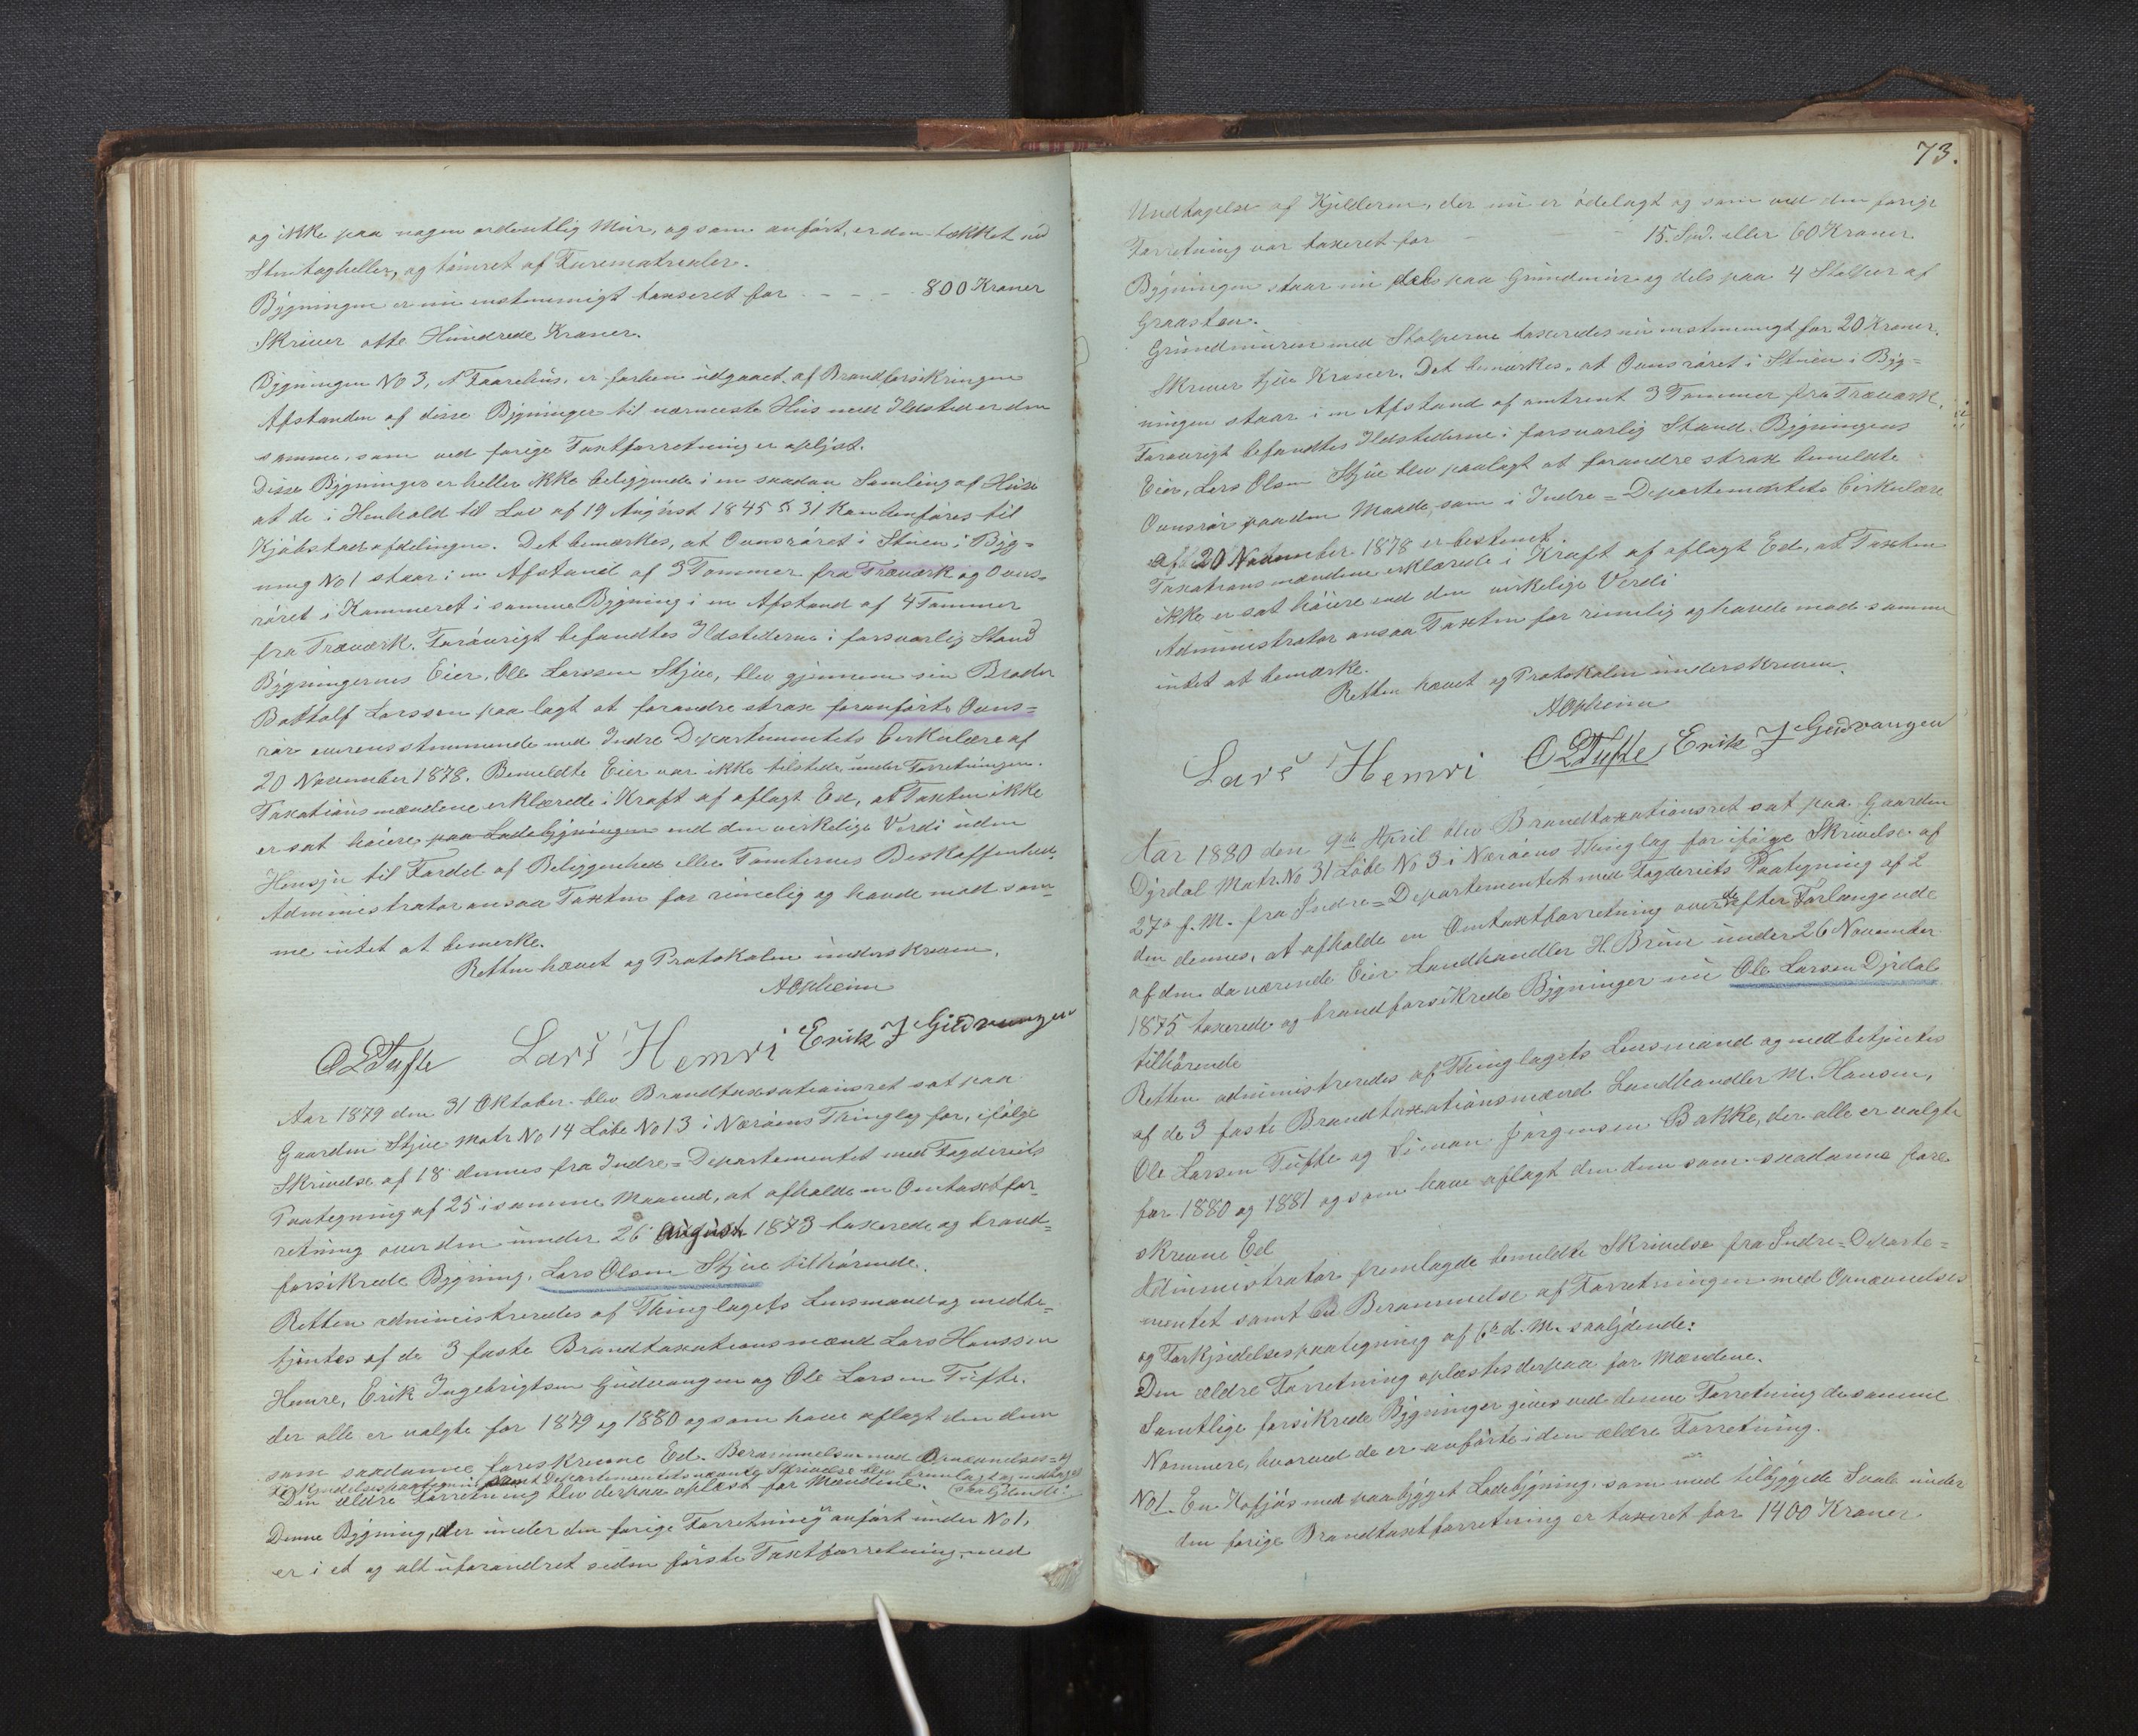 og ikke paa nogen ordentlig Mur, og som anført, er den tækket med
Stentagheller, og tømret af Furematrealer.
Bygningen er nu enstemmigt taxseret for - - - 800 Kroner
Skriver otte Hundrede Kroner.
Bygningen No 3, et Faarehus, er forhen udgaaet af Brandforsikringen
Afstanden af disse Bygninger til nærmeste Hus med Ildsted er den
samme, som ved forige Taxtforretning er oplyst.
Disse Bygninger er heller ikke beliggende i en saadan Samling af Huse
at de i Henhold til Lov af 19 August 1845 § 31 kan henføres til
Kjøbstadafdelingen. Det bemærkes, at Ovnsrøret i Stuen i Byg=
ning No 1 staar i en Afstand af 3 Tommer fra Træværk og Ovns=
røret i Kammeret i samme Bygning i en Afstand af 4 Tommer
fra Træværk. Forøvrigt befandtes Ildstederne i forsvarlig Stand
Bygningernes Eier, Ole Larssen Stjve, blev gjennem sin Broder
Bottolf Larssen paalagt at forandre strax foranførte Ovns=
rør overensstemmende med Indre Departementets Cirkulære af
20 November 1878. Bemeldte Eier var ikke tilstede under Forretningen.
Taxationsmændene erklærede i Kraft af aflagt Ed, at Taxten ikke
er sat høiere paa Ladebygningen end den virkelige Verdi uden
Hensyn til Fordel af Beliggenhed eller Tomternes Beskaffenhed.
Administrator ansaa Taxten for rimelig og havde mod sam=
me intet at bemerke.
Retten hævet og Protokolen underskreven.
AOpheim
OLTufte Lars Hemri Erik J Gudvangen
Aar 1879 den 31 Oktober blev Brandtaxsationsret sat paa
Gaarden Stjve Matr No 14 Løbe No 13 i Nærøens Thinglag for, ifølge
Skrivelse af 18 dennes fra Indre=Departementet med Fogderiets
Paategning af 25 i samme Maaned, at afholde en Omtaxtfor=
retning over den under 26 August 1873 taxerede og brand=
forsikrede Bygning, Lars Olsen Stjve tilhørende.
Retten administreredes af Thinglagets Lensmand og medbe=
tjentes af de 3 faste Brandtaxationsmænd Lars Hanssen
Hemre, Erik Ingebrigtsen Gudvangen og Ole Larsen Tufte,
der alle er valgte for 1879 og 1880 og som have aflagt den dem
som saadanne foreskrevne Ed. Berammelsen med Opnævnelses= og
Forkyndelsespaategning samt Departementets nævnte Skrivelse blev fremlagt og indtages
saalydende:
Den ældre Forretning blev derpaa oplæst for Mændene.
Denne Bygning, der under den forige Forretning er anført under No 1,
er i et og alt uforandret siden første Taxtforretning, med
73.
Undtagelse af Kjelderen, der nu er ødelagt og som ved den forige
Forretning var taxeret for - - 15. Spd. eller 60 Kroner.
Bygningen staar nu dels paa Grundmur og dels paa 4 Stolper af
Graasten.
Grundmuren med Stolperne taxeredes nu enstemmigt for 20 Kroner.
Skriver tjve Kroner. Det bemærkes, at Ovnsrøret i Stuen i Byg=
ningen staar i en Afstand af omtrent 3 Tommer fra Træværk.
Forøvrigt befandtes Ildstederne i forsvarlig Stand. Bygningens
Eier, Lars Olsen Stjve blev paalagt at forandre strax bemeldte
Ovnsrør paa den Maade, som i Indre=Departementets Cirkulære
af 20 November 1878 er bestemt.
Taxationsmændene erklærede i Kraft af aflagt Ed, at Taxten
ikke er sat høiere end den virkelige Verdi
Administrator ansaa Taxten for rimelig og havde mod samme
intet at bemærke.
Retten hævet og Protokolen underskreven.
AOpheim
Lars Hemri OLTufte Erik J Gudvangen
Aar 1880 den 9de April blev Brandtaxationsret sat paa Gaarden
Dyrdal Matr. No 31 Løbe No 3 i Nærøens Thinglag for ifølge Skrivelse af
27de f. M. fra Indre=Departementet med Fogderiets Paategning af 2
den dennes, at afholde en Omtaxtforretning over de efter Forlangende
af den daværende Eier Landhandler H. Brun under 26 November
1875 taxerede og brandforsikrede Bygninger nu Ole Larsen Dyrdal
tilhørende
Retten administreredes af Thinglagets Lensmand og medbetjentes
af de 3 faste Brandtaxationsmænd Landhandler M. Hansen,
Ole Larsen Tufte og Simon Jørgensen Bakke, der alle er valgte
for 1880 og 1881 og som have aflagt den dem som saadanne fore
skrevne Ed
Administrator fremlagde bemeldte Skrivelse fra Indre=Departe=
mentet samt en Berammelse af Forretningen med Opnævnelses
og Forkyndelsespaategning af 6te d. M. saalydende:
Den ældre Forretning oplæstes derpaa for Mændene.
Samtlige forsikrede Bygninger gives ved denne Forretning de samme
Nommere, hvorved de er anførte i den ældre Forretning.
No 1. En Kofjøs med paabygget Ladebygning, som med tilbyggede Svale under
den forige Brandtaxtforretning er taxeret for 1400 Kroner